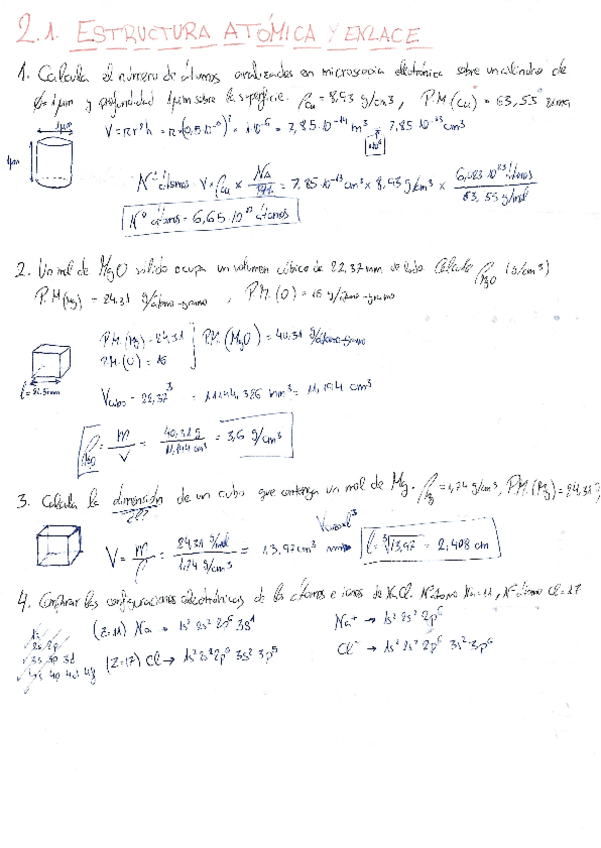 2.1. ESTRUCTURA ATÓMICA Y ENLACE
1. Calcula el número de átomos analizados en microscopia electrónica sobre un cilindro de
φ=1μm y profundidad 1μm sobre la superficie. ρCu = 8,93 g/cm3, P.M(Cu) = 63,55
1μm
V = πr²h = π·(0,5·10⁻⁶)²·1·10⁻⁶ = 7,85·10⁻¹⁹ m³ = 7,85·10⁻¹³ cm³
1μm
Nº átomos = V × ρCu × NA = 7,85·10⁻¹³ cm³ × 8,93 g/cm³ × 6,023·10²³ átomos / 63,55 g/mol
Nº átomos = 6,65·10¹⁰ átomos
2. Un mol de MgO sólido ocupa un volumen cúbico de 22,37mm de lado. Calcula ρMgO (g/cm³)
P.M(Mg) = 24.31 g/átomo-gramo, P.M.(O) = 16 g/átomo-gramo
P.M.(Mg) = 24.31
P.M.(MgO) = 40.31 g/átomo-gramo
P.M.(O) = 16
l = 22.37mm
Vcubo = 22,37³ = 11194,326 mm³ = 11,194 cm³
ρMgO = m/V = 40,31 g / 11,194 cm³ = 3,6 g/cm³
3. Calcula la dimensión de un cubo que contenga un mol de Mg. ρMg = 1,74 g/cm³, P.M.(Mg) = 24,31
V = m/ρ = 24,31 g/mol / 1,74 g/cm³ = 13,97 cm³
l = ∛13,97 = 2,408 cm
4. Comparar las configuraciones electrónicas de los átomos e iones de NaCl. Nº átomo Na=11, Nº átomo Cl=17
1s
2s 2p
3s 3p 3d
4s 4p 4d 4f
(Z=11) Na → 1s² 2s² 2p⁶ 3s¹
Na⁺ → 1s² 2s² 2p⁶
(Z=17) Cl → 1s² 2s² 2p⁶ 3s² 3p⁵
Cl⁻ → 1s² 2s² 2p⁶ 3s² 3p⁶